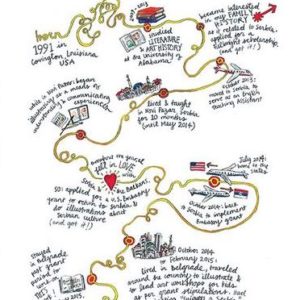 born
1991 in
Covington, Louisiana
USA
studied
LITERATURE
& ART HISTORY
at the University of
Alabama
became interested
in my FAMILY
HISTORY
& related to Serbia:
applied for a
Fulbright scholarship
(got it!)
October 2013:
moved to Serbia, to
serve as an English
Teaching Assistant
while in Novi Pazar: began
illustrating as a mode to
understanding & communicating
my experiences
lived & taught
in Novi Pazar, Serbia
for 10 months
(until May 2014)
somewhere in general
fell in LOVE with
Serbia & the Balkans,
so: applied for a U.S. Embassy
grant to return to Serbia &
do illustrations about
Serbian culture
(and got it!)
July 2014:
home to the
states
October 2014: back
to Serbia to implement
Embassy grant
October 2014
to February 2015:
lived in Belgrade, traveled
around the country to illustrate &
lead art workshops for kids
as per grant stipulations.
Stayed
in Belgrade
post grant
period